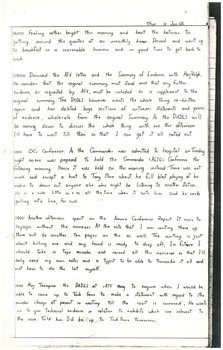 Thur 6 Jan 83
1000 Feeling rather bright this morning and beat the batmen to
putting around the quarter at an unearthly hour. Second went up
to breakfast in a reasonable humour and in good time to get back to
work.
1000 Discussed the RSV letter and the Summary of Evidence with
We wonder that the original summary must stand and that any further
evidence, as requested by ASV, must be included as a supplement to the
original summary. The DADALS however wants the whole thing re-written
again and has deleted large sections of witnesses statements and pieces
of evidence, wholesale from the original Summary. As the DADALS will
be coming down to discuss the whole thing with me this afternoon
I'll have to wait till then so that I can get it all sorted out.
OCs Conference. As the Commander was admitted to hospital on Tuesday
night no one was prepared to hold the Commands Conference the
following morning. Hence it was held on the morning instead. There was not
much said except a hint to Tony Stone about his full blast playing of his
radio to drown out anyone else who might be listening to another station.
He is a rude little so and so all the time when it suits him and he needs
pulling into line, for sure.
1500 Another afternoon spent on the Annual Conference Report. It runs to
14 pages without the annexes. At the rate that I am writing them up
there will be another ten pages on the as well. The writing is just
about killing me and my hand is ready to drop off. In future I
should take a tape recorder and record all this nonsense so that I'll
only need my own notes and a typist to be able to transcribe it all and
not have to do the lot myself.
May Thompson the DADALS at rang to enquire when I would be
able to come up to Task force to make a statement with regard to the
murder charge at present in waiting till the court is convened. He wants
me to give technical evidence in relation to exhibits which are relevant to
the case. Told him I'd be up to Task force tomorrow.